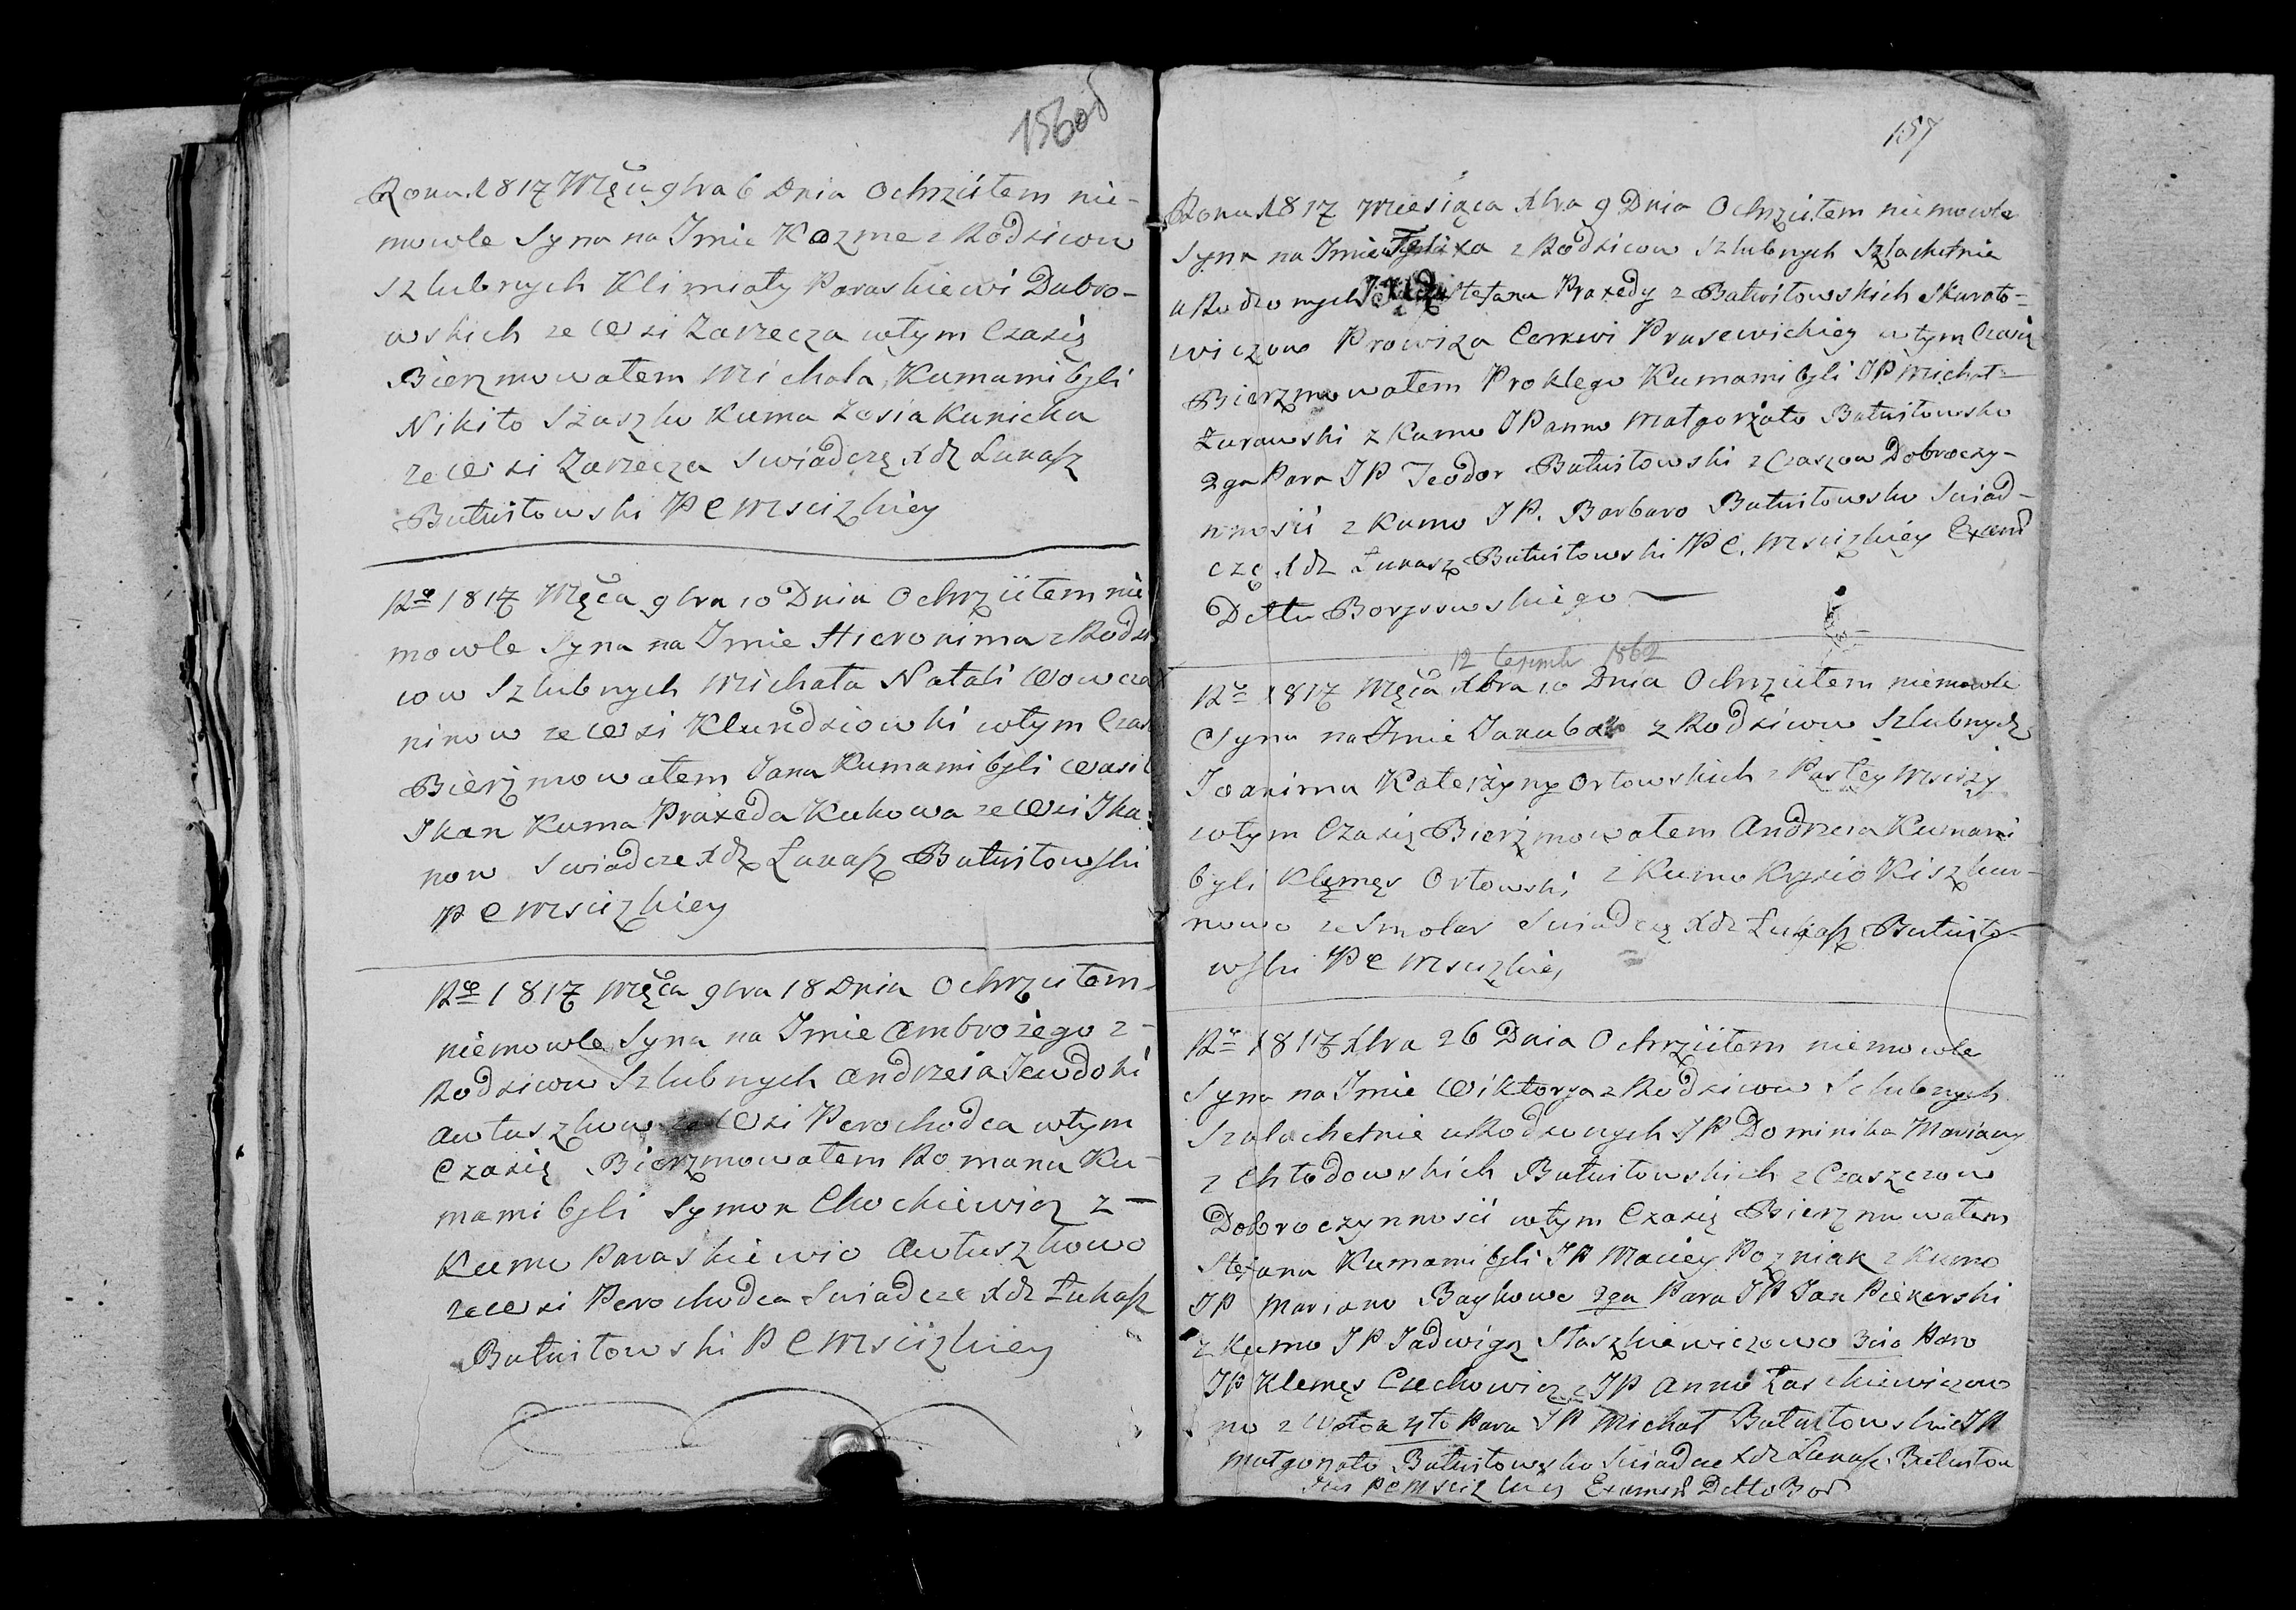 156 об
Roku 1817 Męca 9bra 6 Dnia Ochrzciłem nie-
mowle Syna na Imie Kozme z Rodzicow
Szlubnych Klimiaty Paraskiewi Dubro-
wskich ze Wsi Zarzecza wtym Czasię
Bierzmowałem Michala, Kumami byli
Nikito Szaszko Kuma Zosia Kunicka
ze Wsi Zarzecza Swiadczę Xdz Łukasz
Bututtowski P C Mscizkiey
Rº 1817 Męca 9bra 10 Dnia Ochrzciłem nie
mowle Syna na Imie Hieronima z Rodzi
cow Szlubnych Michała Natali Wowcza
ninow ze Wsi Klundziowki wtym Czas
Bierzmowałem Jana Kumami byli Wasil
Ikan Kuma Praxeda Kukowa ze Wsi Ika
now Swiadcze Xdz Łukasz Bututtowski
P C Mscizkiey
Rº 1817 Męca 9bra 18 Dnia Ochrzciłem
niemowle Syna na Imie Ambrożego z -
Rodzicow Szlubnych Andrzeia Jewdoki
Awtuszkow ze Wsi Perochodca wtym
Czasię Bierzmowałem Romana Ku-
mami byli Symon Chockiewicz z -
Kumo Paraskiewio Awtuszkowo
ze Wsi Perochodca Swiadcze Xdz Łukasz
Bututtowski P C Msciizkiey
157
Roku 1817 Miesiąca Xbra 9 Dnia Ochrzciłem niemowle
Syna na Imie Felixa z Rodzicow Szlubnych Szlachetnie
uRodzonych Stefana Praxedy z Batuttowskich Skuroto-
wiczow Prowiza Cerkwi Prusewickiey wtym Czasię
Bierzmowałem Proklego Kumami byli JP Michał
Żurawski z Kumo JPanno Małgorzato Bututtowsko
2ga Para JP Teodor Bututtowski z Czaszow Dobroczy-
nności z Kumo JP. Barbaro Bututtowsko Swiad-
czę Xdz Łukasz Bututtowski P C. Mscizkiey Exami
Dettu Borysowskiego
12 1862
Rº 1817 Męca Xbra 10 Dnia Ochrzciłem niemowle
Syna na Imie Jakuba z Rodzicow Szlubnych
Joakima Katerzyny Orłowskich z Mscizy
wtym Czasię Bierzmowałem Andrzeia Kumami
byli Klemęs Orłowski z Kumo Krysio Kiszkur-
nowo ze Smolar Swiadczę Xdz Łukasz Bututto-
wski P C Mscizkiey
Rº 1817 Xbra 26 Dnia Ochrzciłem niemowle
Syna na Imie Wiktorya z Rodzicow Szlubnych
Szalachetnie uRodzonych JP Dominika Maryany
z Chłodowskich Bututtowskich z Czaszczow
Dobroczynności wtym Czasię Bierzmowałem
Stefana Kumami byli JP Maciey Pozniak z Kumo
JP Mariano Baykowo 2ga Para JP Jan Piekarski
z Kumo JP Jadwigą Staszkiewiczowo 3cia Para
JP Klemęs Czechowicz z JP Anno Łaskiewiczow
no z 4to Para JP Michał Bututtowski z JP
Małgorzato Bututtowsko Swiadcze Xdz Łukasz Bututtow
ski P C Mscizkiey Examin Detto Bor